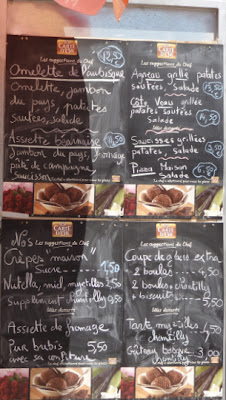 CARTE D'OR
Les suggestions du Chef
12,50
Omelette de l'aubisque
Omelette, jambon
du pays, patates
sautées, salade
Assiette Béarnaise 11,50
Jambon du pays, fromage
pate de campagne
saucisson
CARTE D'OR
Les suggestions du Chef
Agneau grillé patates
sautées, Salade 13,50
Côte Veau grillée
patates sautées
Salade 14,50
Idées desserts
Saucisses grillées
patates, salade
Pizza Maison
Salade
La Chef a sélectionné pour vous les glaces
CARTE D'OR
Les suggestions du Chef
Nos
Crêpes "maison"
Sucre 1,50
Nutella, miel, myrtilles 2,50
Supplément chantilly
Idées desserts
Assiette de fromage
Pur brebis 5,50
avec sa confiture
CARTE D'OR
Les suggestions du Chef
Coupe de glace extra
2 boules 4,50
2 boules + chantilly
+ biscuit 5,50
Idées desserts
Tarte myrtilles 4,50
chantilly
Gâteau basque 3,00
chantilly